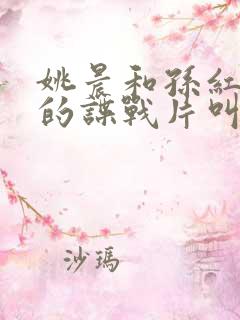 姚晨和孫紅
的諜戰片叫
沙瑪